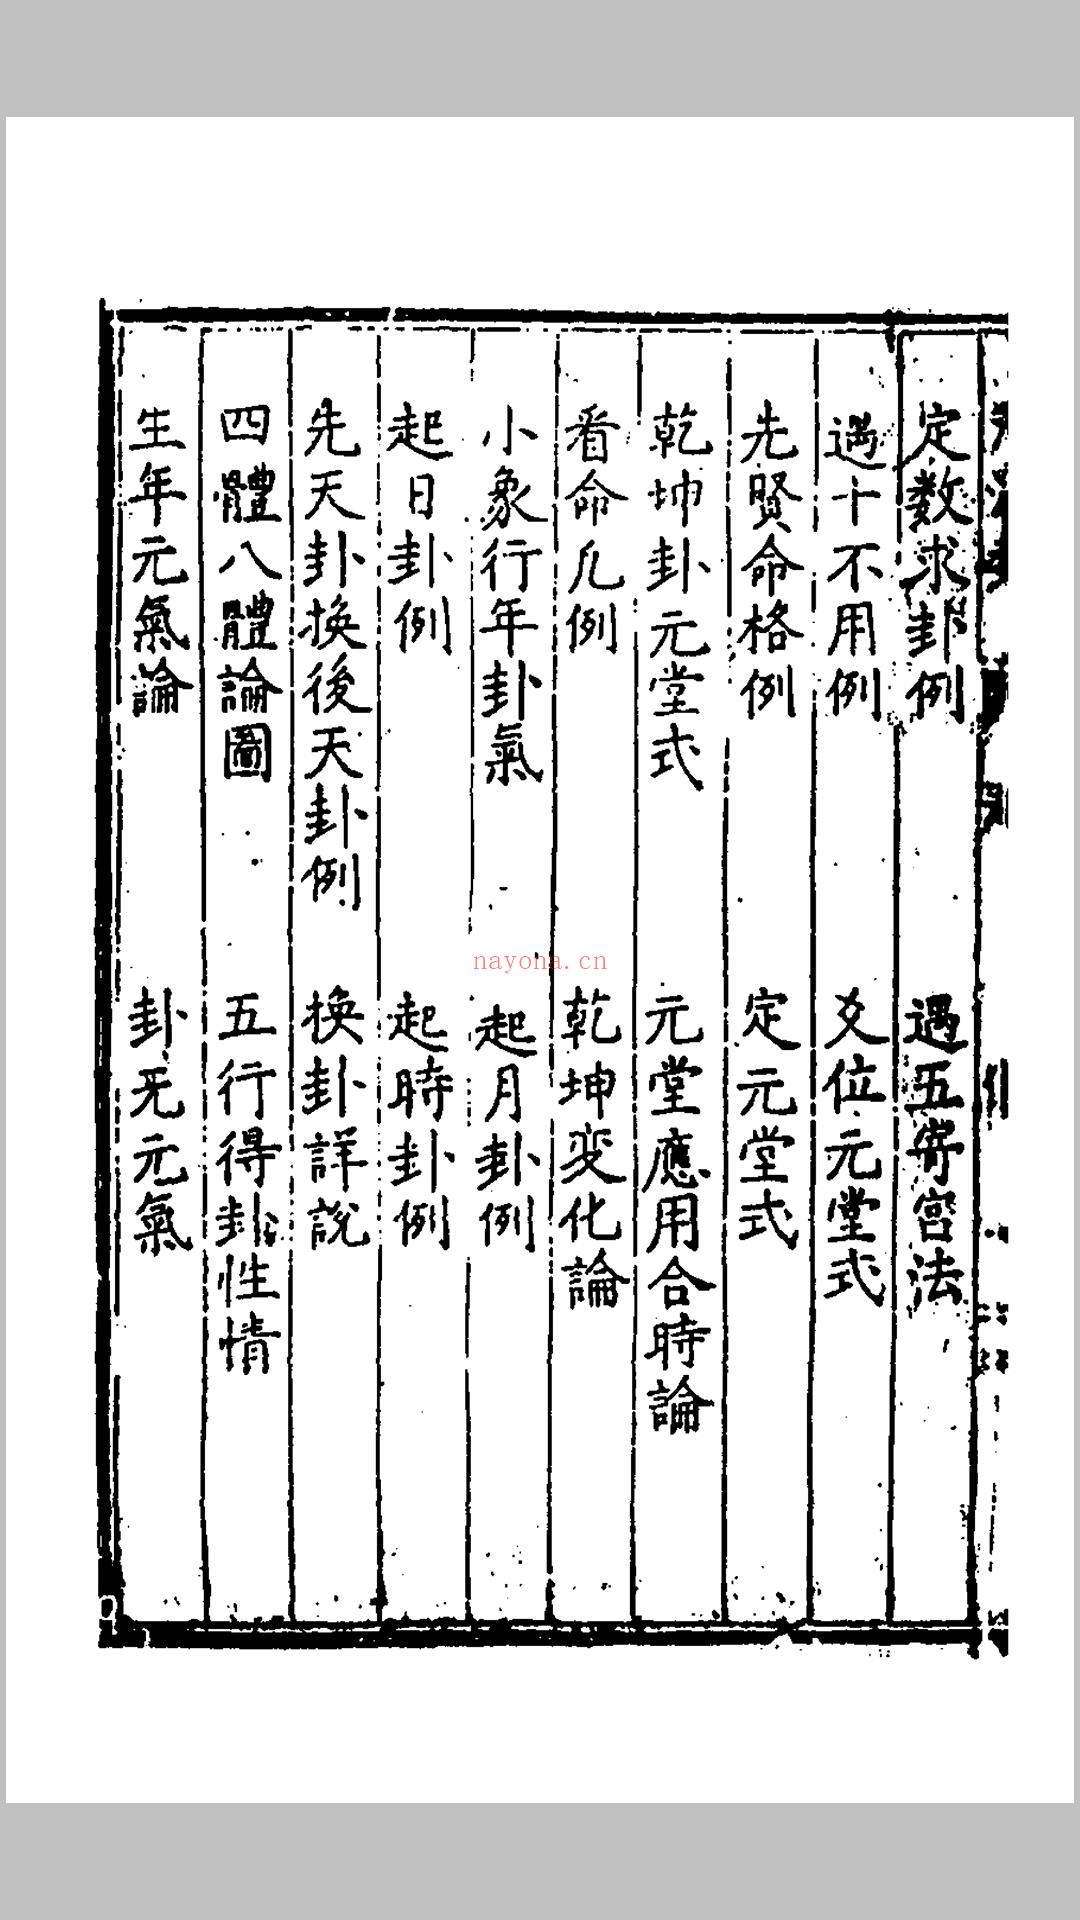 定数求卦例　遇五寄宫法
遇十不用例　爻位元堂式
先賢命格例　定元堂式
乾坤卦元堂式　元堂應用合時論
看命凡例　乾坤变化論
小象行年卦氣　起月卦例
起日卦例　起時卦例
先天卦换後天卦例　换卦詳說
四體八體論圖　五行得卦性情
生年元氣論　卦无元氣
nayona.cn